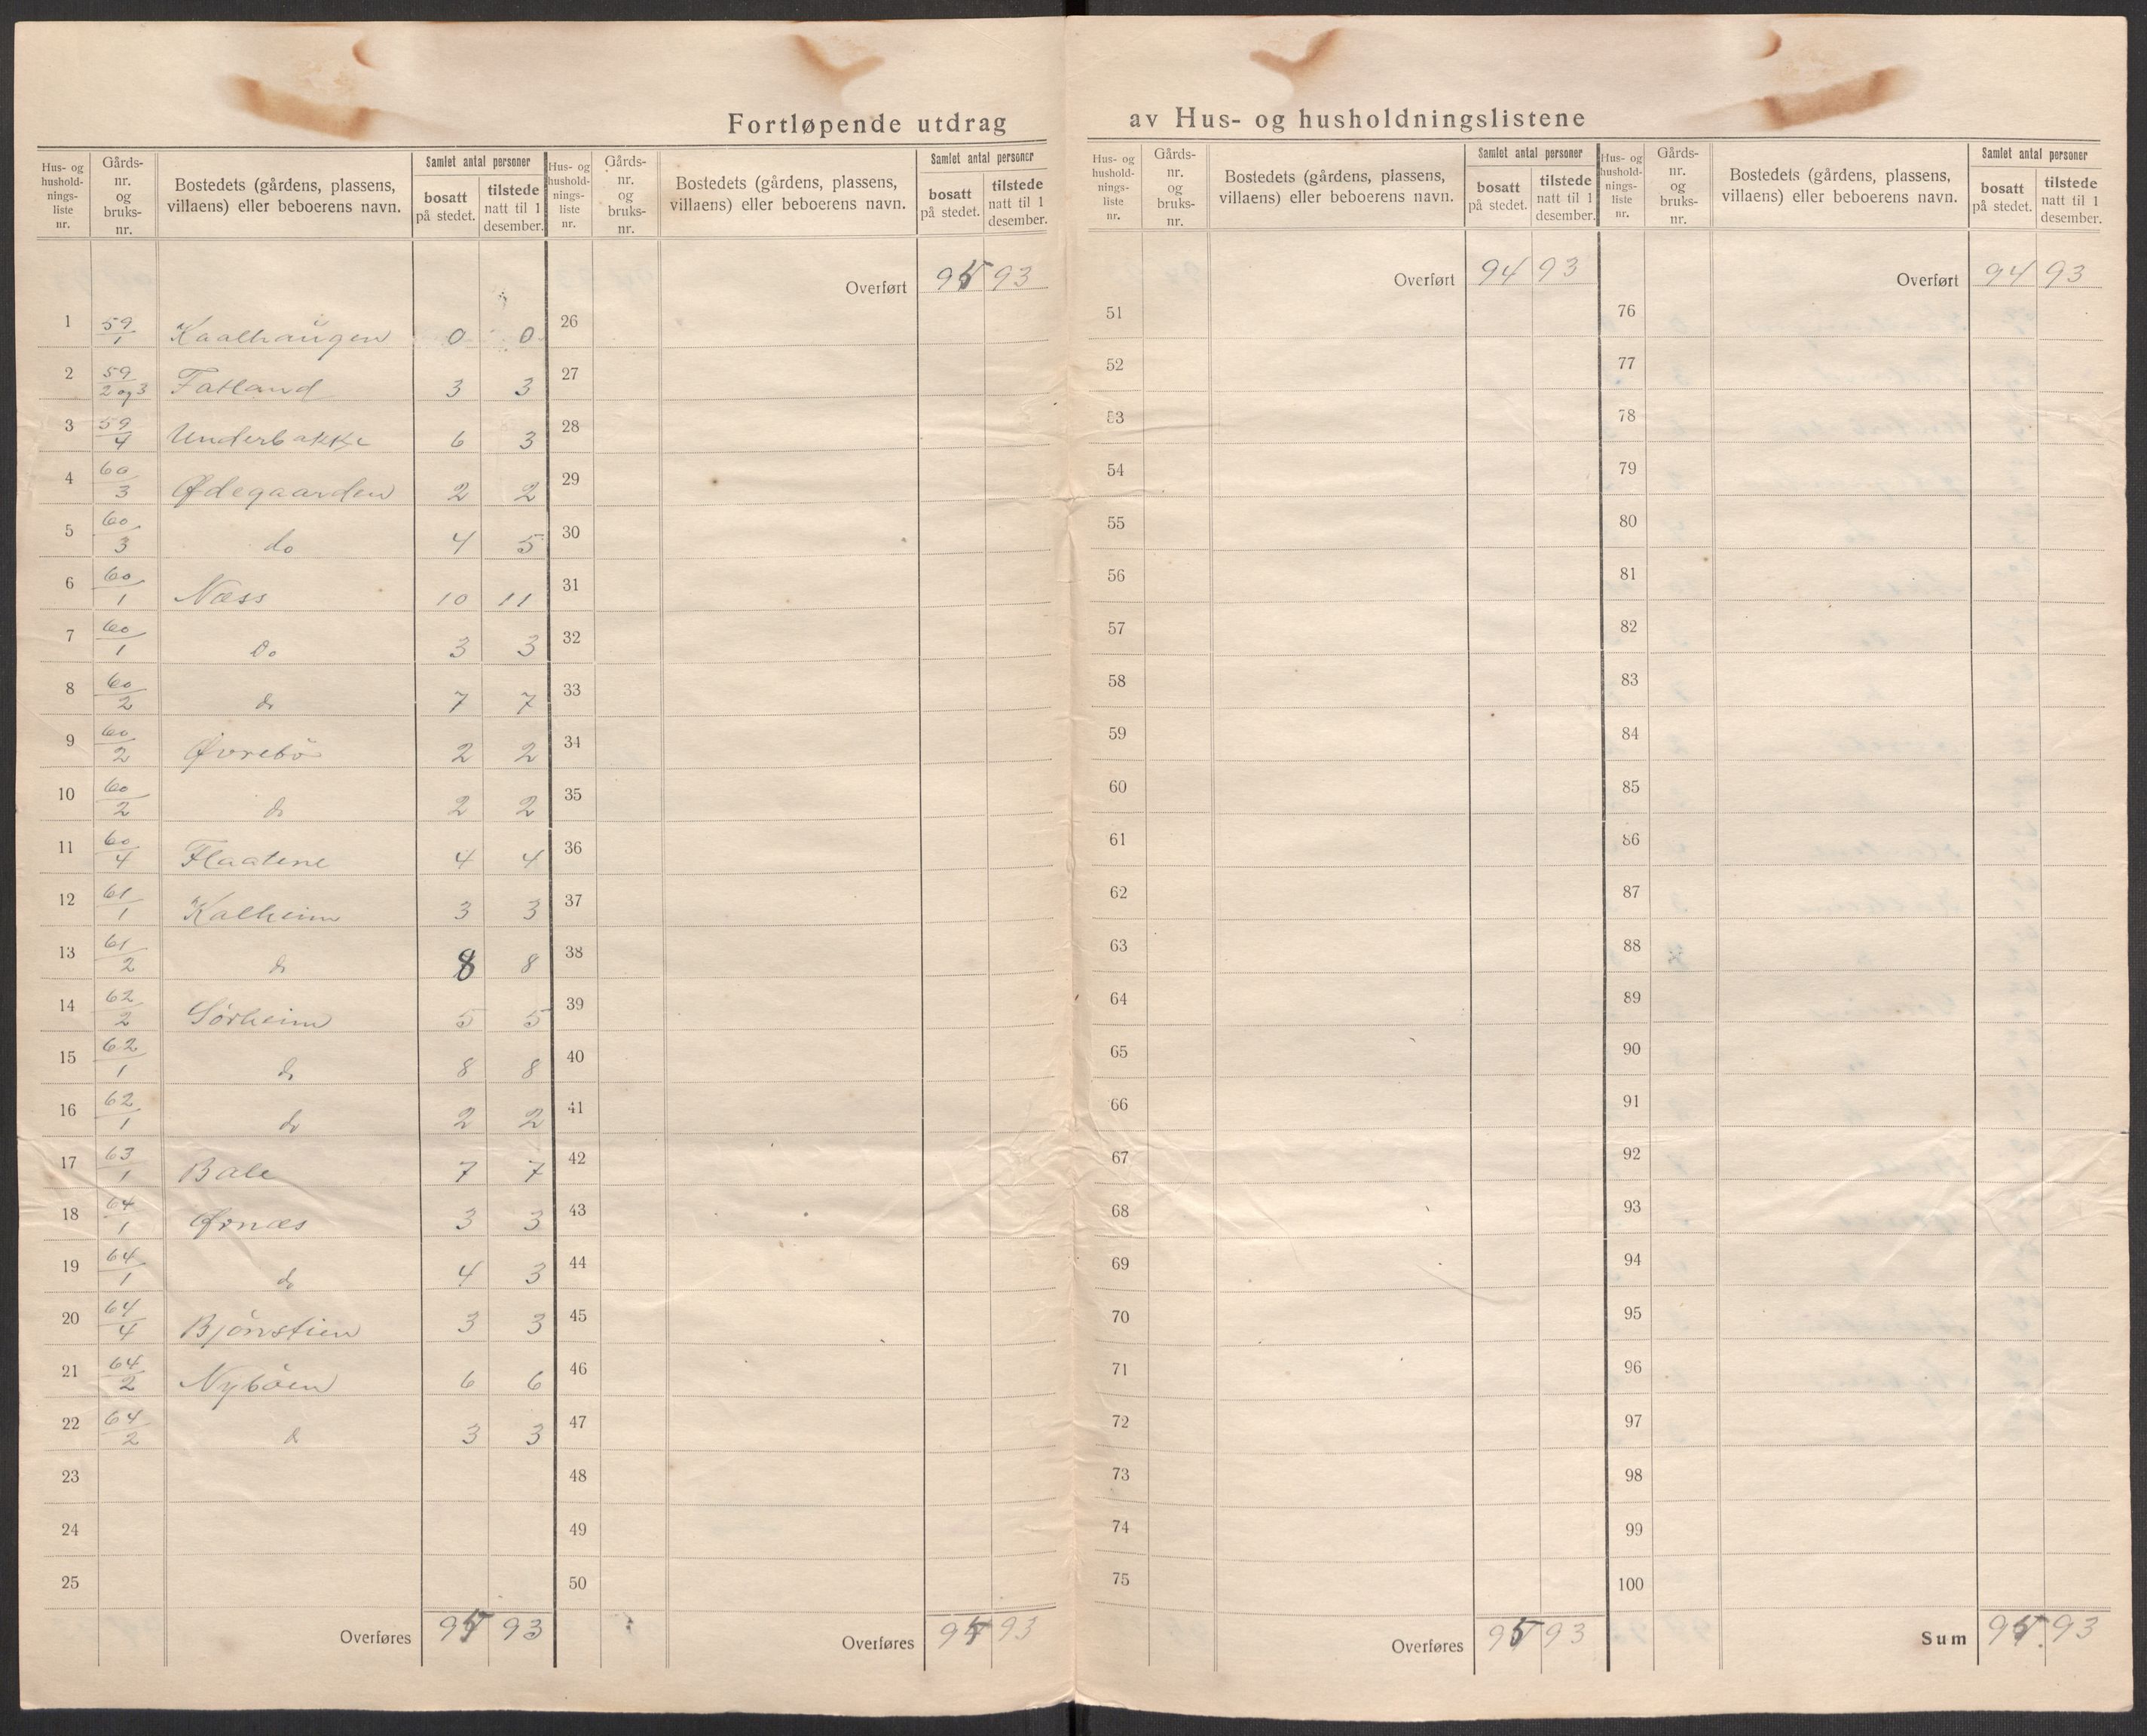 Fortløpende utdrag av Hus- og husholdningslistene
Hus- og hushold-nings-liste nr. Gårds-nr. og bruks-nr. Bostedets (gårdens, plassens, villaens) eller beboerens navn. Samlet antal personer bosatt på stedet. tilstede natt til 1 desember.
1 59/1 Kaalhaugen 0 0
2 59/2 og 3 Fatland 3 3
3 59/4 Underbakke 6 3
4 60/3 Ødegaarden 2 2
5 60/3 do 4 5
6 60/1 Næss 10 11
7 60/1 Do 3 3
8 60/2 do 7 7
9 60/2 Øvrebö 2 2
10 60/2 do 2 2
11 60/4 Flaatene 4 4
12 61/1 Kalheim 3 3
13 61/2 do 8 8
14 62/2 Sørheim 5 5
15 62/1 do 8 8
16 62/1 do 2 2
17 63/1 Bale 7 7
18 64/1 Ørnæs 3 3
19 64/1 do 4 3
20 64/4 Bjönstien 3 3
21 64/2 Nyböen 6 6
22 64/2 do 3 3
23
24
25
Overføres 95 93
Hus- og hushold-nings-liste nr. Gårds-nr. og bruks-nr. Bostedets (gårdens, plassens, villaens) eller beboerens navn. Samlet antal personer bosatt på stedet. tilstede natt til 1 desember.
Overført 95 93
26
27
28
29
30
31
32
33
34
35
36
37
38
39
40
41
42
43
44
45
46
47
48
49
50
Overføres 95 93
Hus- og hushold-nings-liste nr. Gårds-nr. og bruks-nr. Bostedets (gårdens, plassens, villaens) eller beboerens navn. Samlet antal personer bosatt på stedet. tilstede natt til 1 desember.
Overført 94 93
51
52
53
54
55
56
57
58
59
60
61
62
63
64
65
66
67
68
69
70
71
72
73
74
75
Overføres 95 93
Hus- og hushold-nings-liste nr. Gårds-nr. og bruks-nr. Bostedets (gårdens, plassens, villaens) eller beboerens navn. Samlet antal personer bosatt på stedet. tilstede natt til 1 desember.
Overført 94 93
76
77
78
79
80
81
82
83
84
85
86
87
88
89
90
91
92
93
94
95
96
97
98
99
100
Sum 95 93